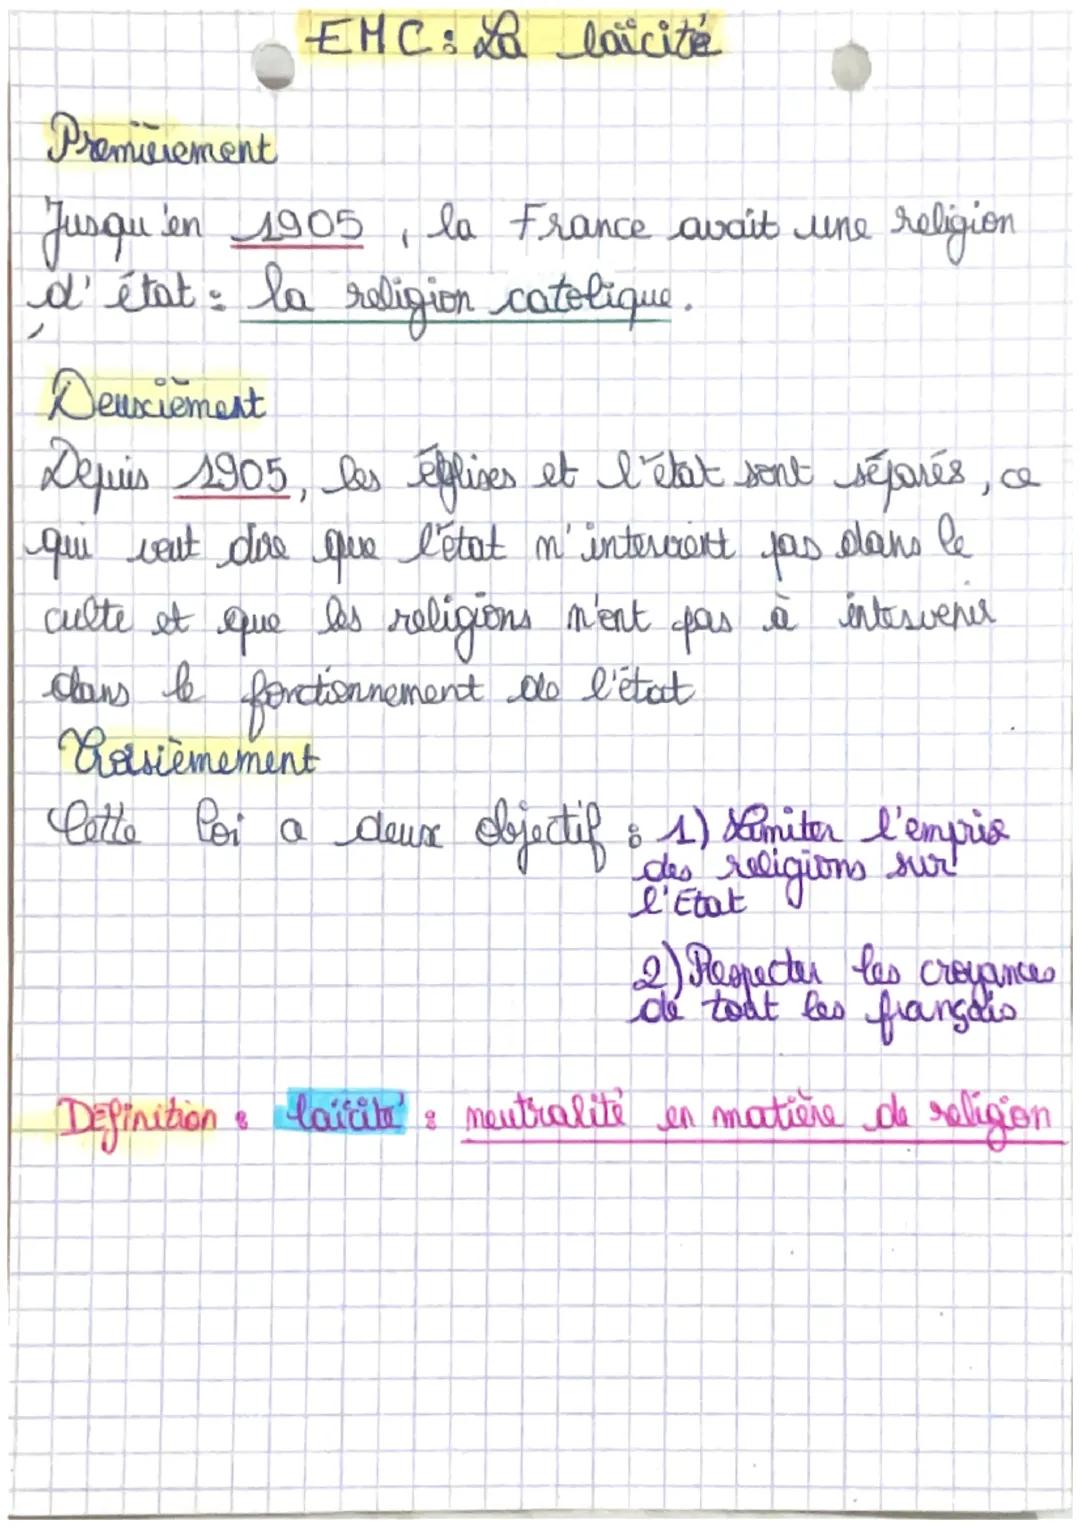 EMC : La laïcité
Premièrement
Jusqu'en 1905, la France avait une religion
d'état : la religion catolique.
Deuxièment
Depuis 1905, les églises et l'état sont séparés, ce
qui veut dire que l'état n'intervient pas dans le
culte et que les religions n'ont pas à intervenir
dans le fonctionnement de l'état
Troisièmement
Cette loi a deux objectif : 1) Limiter l'emprise
des religions sur
l'Etat
2) Respecter les croyances
de tout les français
Définition : laïcité : neutralité en matière de religion